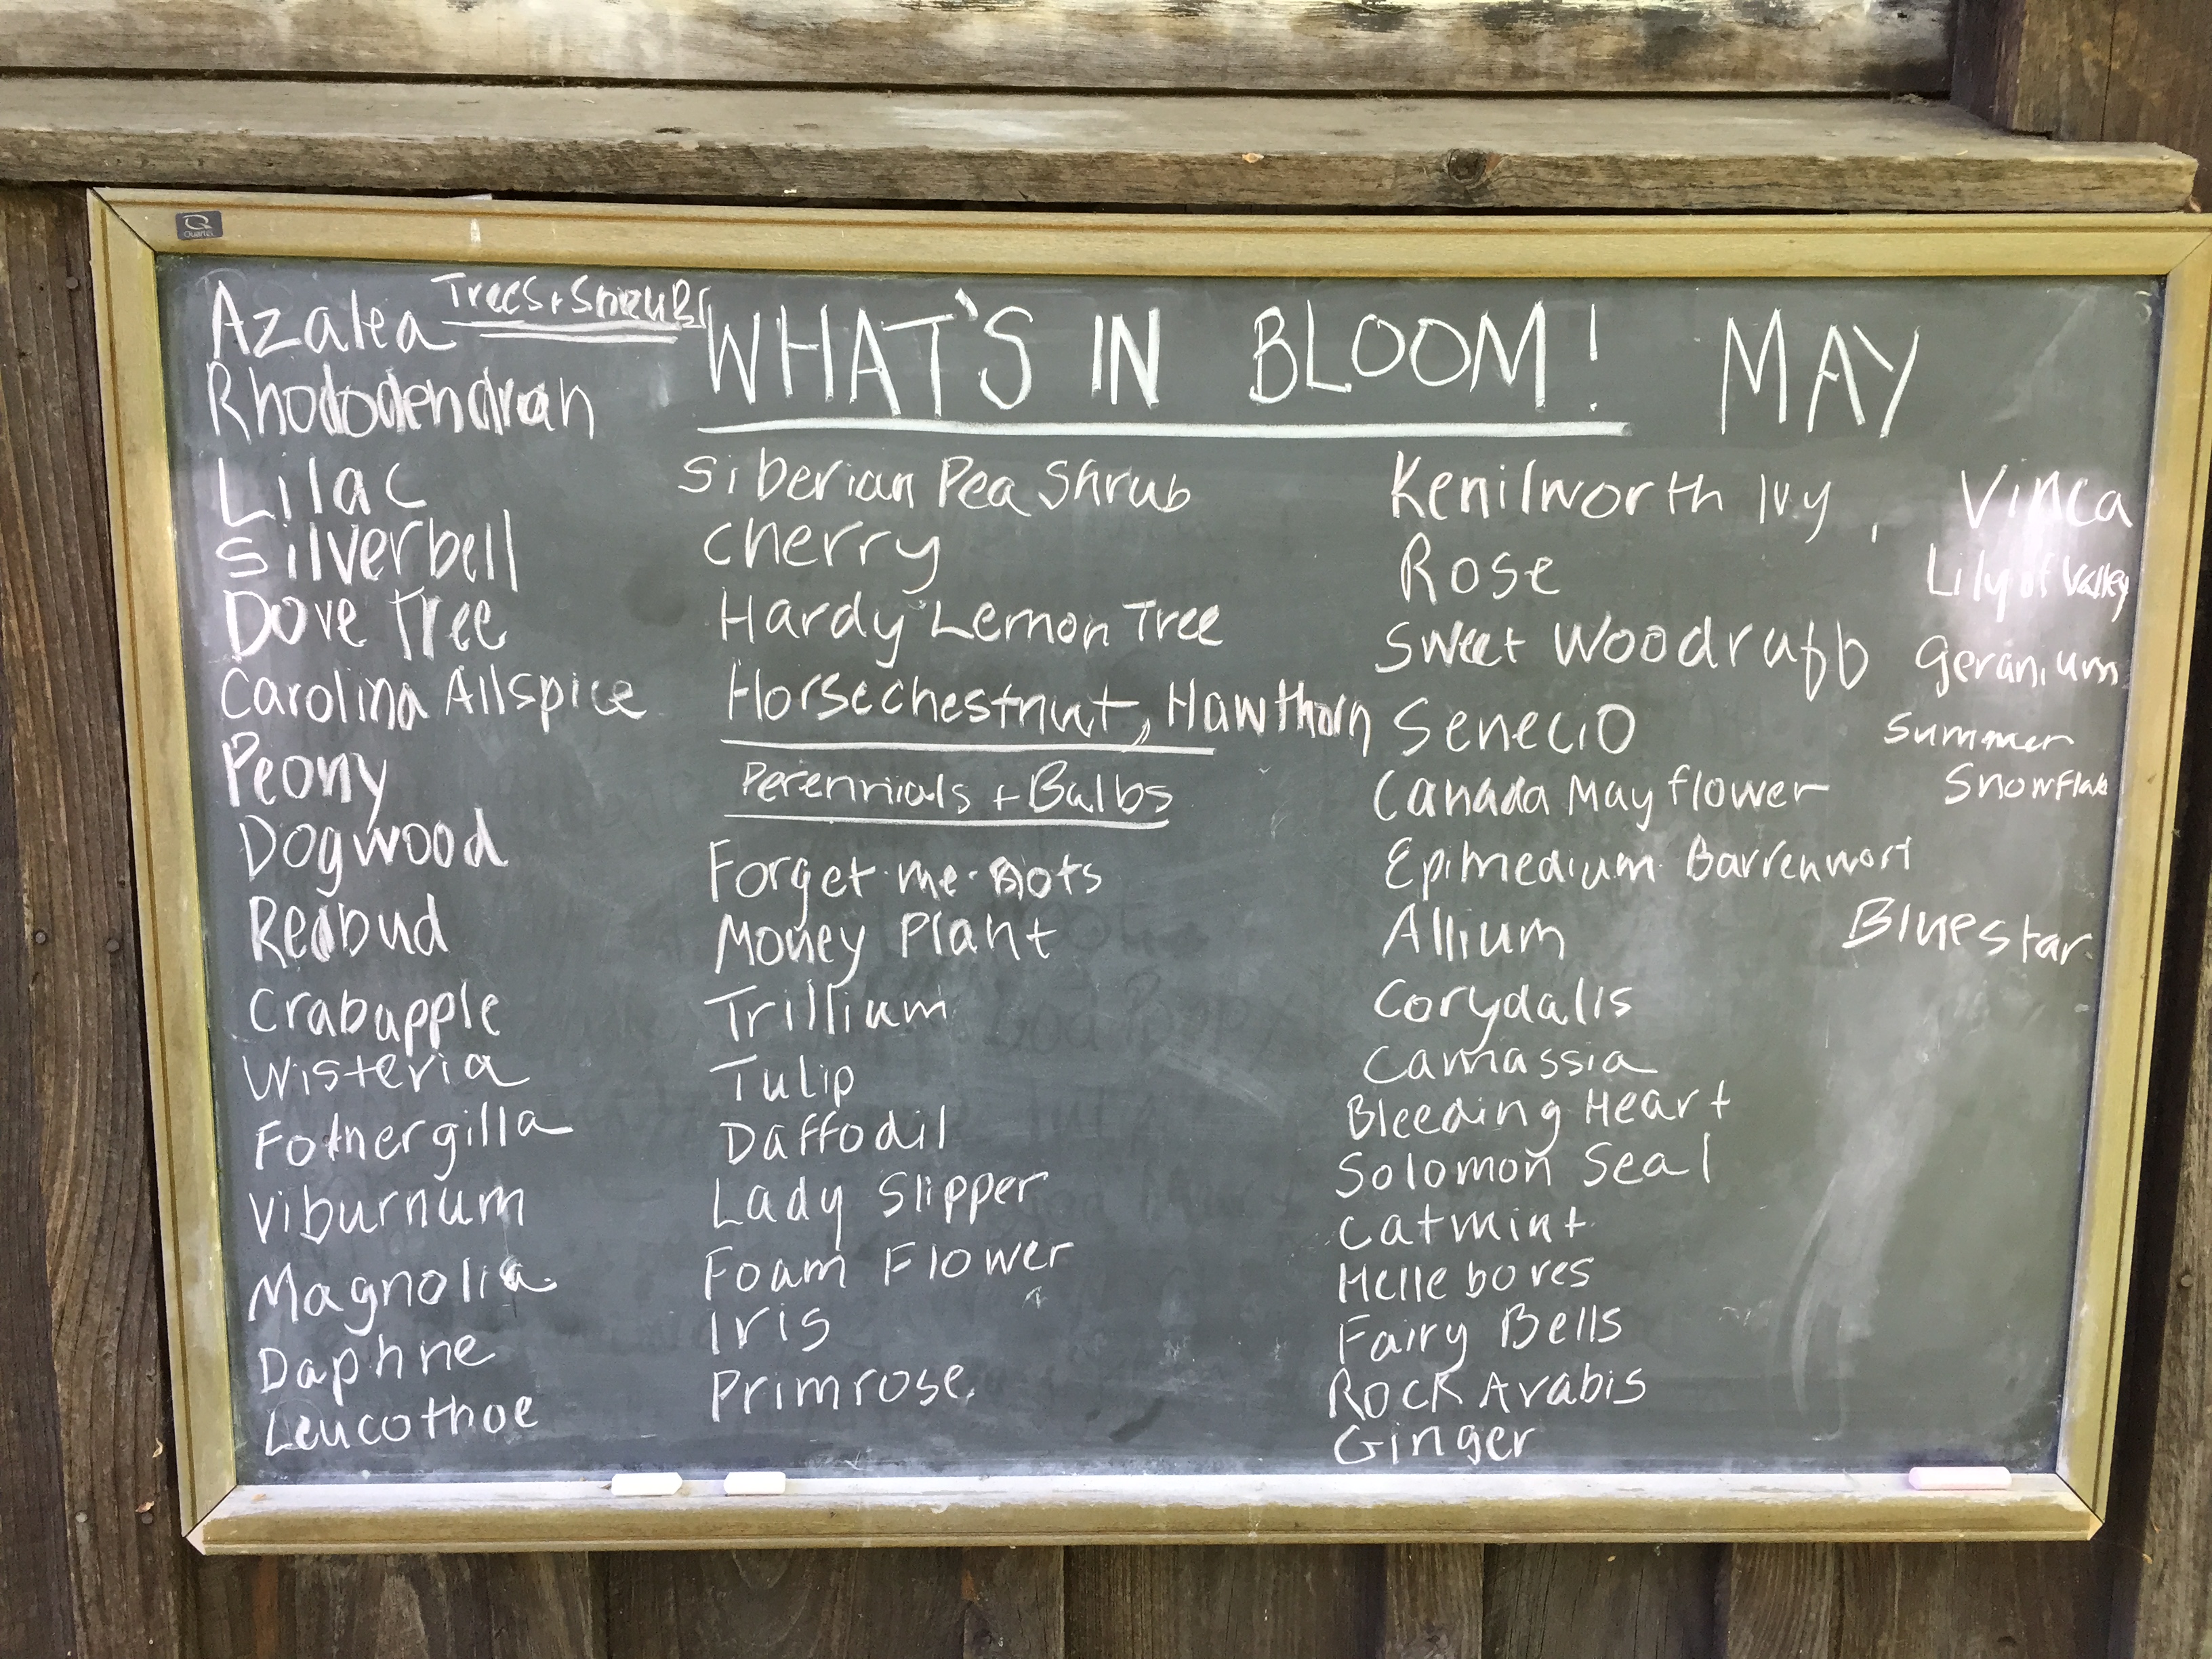 Quartet
Trees + Shrubs
WHAT'S IN BLOOM! MAY
Azalea
Rhododendran
Lilac
Silverbell
Dove Tree
Carolina Allspice
Peony
Dogwood
Redbud
Crabapple
Wisteria
Fothergilla
Viburnum
Magnolia
Daphne
Leucothoe
Siberian Pea Shrub
Cherry
Hardy Lemon Tree
Horsechestnut, Hawthorn
Perennials + Bulbs
Forget-me-nots
Money Plant
Trillium
Tulip
Daffodil
Lady Slipper
Foam Flower
Iris
Primrose
Kenilworth Ivy,
Rose
Sweet Woodruff
Senecio
Canada Mayflower
Epimedium Barrenwort
Allium
Corydalis
Camassia
Bleeding Heart
Solomon Seal
Catmint
Hellebores
Fairy Bells
Rock Arabis
Ginger
Vinca
Lily of Valley
Geranium
Summer
Snowflak
Bluestar